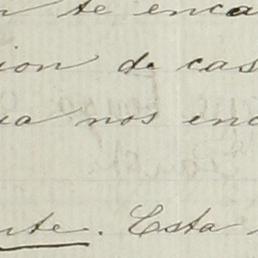 te enca
ion de cas
ua nos enc
nte. Esta